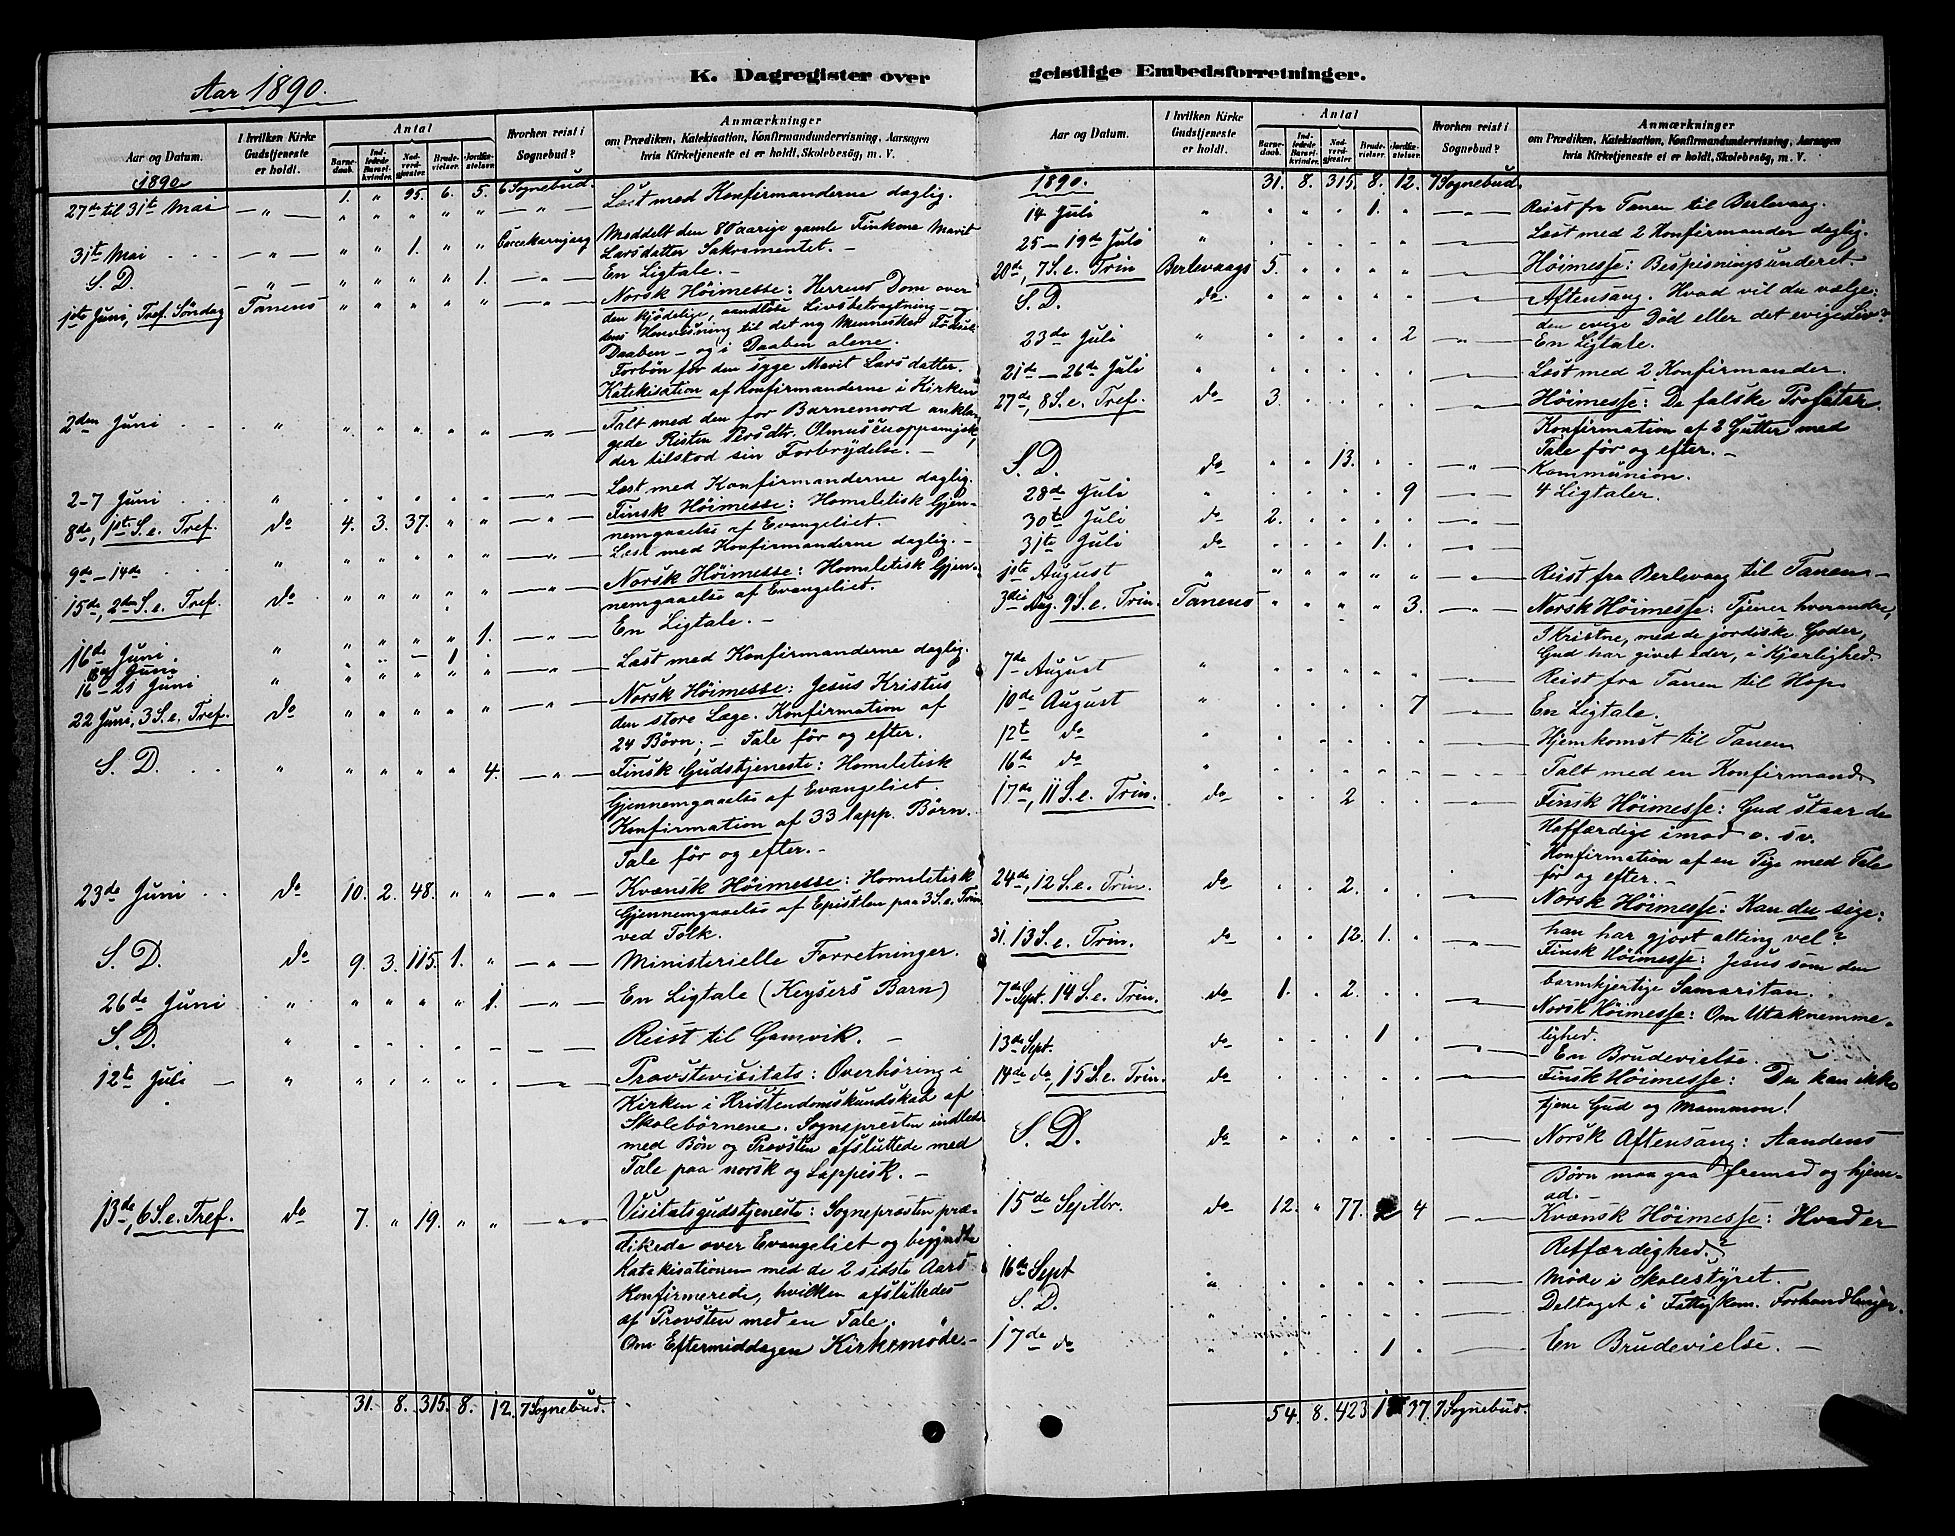 Aar 1890.
K. Dagregister over
Aar og Datum.
I hvilken Kirke Gudstjeneste er holdt.
Antal
Barnedaab.
Indledede Barselkvinder.
Nadverdgjester.
Brudevielser.
Jordfæstelser.
Hvorhen reist i Sognebud?
Anmærkninger
om Prædiken, Katekisation, Konfirmandundervisning, Aarsagen
hvis Kirketjeneste ei er holdt, Skolebesög, m. V.
1890
1. " 95. 6. 5. 6 Sognebud.
27de til 31te Mai — " — " " " " " — " — Læst med Konfirmanderne daglig.
31te Mai . . . — " — " " 1. " " Meddelt den 80aarige gamle Finkone Marit
Larsdatter Sakramentet. —
S. D. — " — " " " " 1. — " — En Ligtale. —
1ste Juni, Tref. Søndag Tanens " " " " " — " — Norsk Høimesse: Herrens Dom over
den kjødelige, aandløse Livsbetragtning — og
hans Henvisning til det ny Menneskes Fødsel i
Daaben — og i Daaben alene.
Forbøn for den syge Marit Larsdatter.
Katekisation af Konfirmanderne i Kirken
2den Juni . . " " " " " " — " — Talt med den for Barnemord ankla-
gede Risten Persdtr.
der tilstod sin Forbrydelse. —
2-7 Juni . . . " " " " " " — " — Læst med Konfirmanderne daglig.
8de, 1ste S. e. Tref. do 4. 3. 37. " " — " — Finsk Høimesse: Homiletisk Gjen-
nemgaaelse af Evangeliet.
9de — 14de . . . " " " " " " — " — Læst med Konfirmanderne daglig. —
15de, 2den S. e. Tref. do " " " " " — " — Norsk Høimesse: Homiletisk Gjen-
nemgaaelse af Evangeliet.
16de Juni. " " " " " 1. — " — En Ligtale. —
Juni " " — 1. "
16-21 Juni " " " " " " — " — Læst med Konfirmanderne daglig.
22 Juni, 3 S. e. Tref. do " " " " " — " — Norsk Høimesse: Jesus Kristus
den store Læge. Konfirmation af
24 Børn; — Tale før og efter.
S. D. . . " " " " " 4. — " — Finsk Gudstjeneste: Homiletisk
Gjennemgaaelse af Evangeliet.
Konfirmation af 33 lapp. Børn.
Tale før og efter. —
23de Juni . . do 10. 2. 48. " " — " — Kvænsk Høimesse: Homiletisk
Gjennemgaaelse af Epistlen paa 3 S. e. Trin.
ved Tolk.
S. D. do 9. 3. 115. 1. " — " — Ministerielle Forretninger.
26de Juni " " " " " 1. — " — En Ligtale (Keysers Barn)
S. D. " " " " " " — — Reist til Gamvik. —
12te Juli — " " " " " " — " — Provstevisitats: Overhøring i
Kirken i Kristendomskundskab af
Skolebørnene. Sognepresten indledede
med Bøn og Provsten afsluttede med
Tale paa norsk og lappisk. —
13de, 6 S. e. Tref. do 7. " 19. " " — " — Visitatsgudstjeneste: Sognepresten præ-
dikede over Evangeliet og begyndte
Katekisationen med de 2 sidste Aars
Konfirmerede, hvilken afsluttedes
af Provsten med en Tale.
Om Eftermiddagen Kirkemøde. —
31. 8. 315. 8. 12. 7 Sognebud.
geistlige Embedsforretninger.
Aar og Datum.
I hvilken Kirke Gudstjeneste er holdt.
Antal
Barnedaab.
Indledede Barselkvinder.
Nadverdgjester.
Brudevielser.
Jordfæstelser.
Hvorhen reist i Sognebud?
Anmærkninger
om Prædiken, Katekisation, Konfirmandundervisning, Aarsagen
hvis Kirketjeneste ei er holdt, Skolebesög, m. V.
1890. 31. 8. 315. 8. 12. 7 Sognebud.
14 Juli " " " " 1. " — " — Reist fra Tanen til Berlevaag.
25 — 19de Juli " " " " " " — " — Læst med 2 Konfirmander daglig.
20de, 7 S. e. Trin Berlevaags 5. " " " " — " — Høimesse: Bespisningsunderet.
S. D. do " " " " " — " — Aftensang. Hvad vil du vælge:
den evige Død eller det evige Liv?
23de Juli " " " " " 2 — " — En Ligtale.
21de — 26de Juli " " " " " — " — Læst med 2 Konfirmander.
27de, 8 S. e. Tref. do 3. " " " " — " — Høimesse: De falske Profeter.
Konfirmation af 2 Gutter med
Tale før og efter. —
S. D. do " " 13. " " — " — Kommunion.
28de Juli " " " " " 9 — " — 4 Ligtaler.
30te Juli do 2. " " " " — " —
31te Juli do " " " 1. " — " —
1ste August " " " " " " — " — Reist fra Berlevaag til Tanen —
3die Aug. 9 S. e. Trin. Tanens " " " " 3. — " — Norsk Høimesse: Tjener hverandre,
I Kristne, med de jordiske Goder,
Gud har givet eder, i Kjærlighed.
7de August " " " " " " — " — Reist fra Tanen til Hop.
10de August " " " " " 7 — " — En Ligtale.
12te do " " " " — " — Hjemkomst til Tanen
16de do " " " " — " — Talt med en Konfirmand
17de, 11 S. e. Trin. do " " 2 " " — " — Finsk Høimesse: Gud staar de
Hoffærdige imod o. sv.
Konfirmation af en Pige med Tale
før og efter. —
24de, 12 S. e. Trin. do " " 2. " " — " — Norsk Høimesse: Kan du sige:
han har gjort alting vel?
31. 13 S. e. Trin. do " " 12. 1. " — " — Finsk Høimesse: Jesus som den
barmhjertige Samaritan.
7de Sept. 14 S. e. Trin. do 1. " 2. " " — " — Norsk Høimesse: Om Utaknemme-
lighed.
13de Sept. do " " " 1 " — " — En Brudevielse.
14de do, 15 S. e. Trin. do " " " " " — " — Finsk Høimesse: Du kan ikke
tjene Gud og Mammon!
S. D. do " " " " " — — Norsk Aftensang: Aandens
Børn maa gaa fremad og hjem-
ad. —
15de Septbr. do 12. " 77. 2 4 — " — Kvænsk Høimesse: Hvad er
Retfærdighed?
16de Sept " " " " " " — " — Møde i Skolestyret.
S. D. " " " " " — " — Deltaget i Fattigkom. Forhandlinger.
17de do " " " 1 " — " — En Brudevielse. —
54. 8. 423 37. 7 Sognebud.